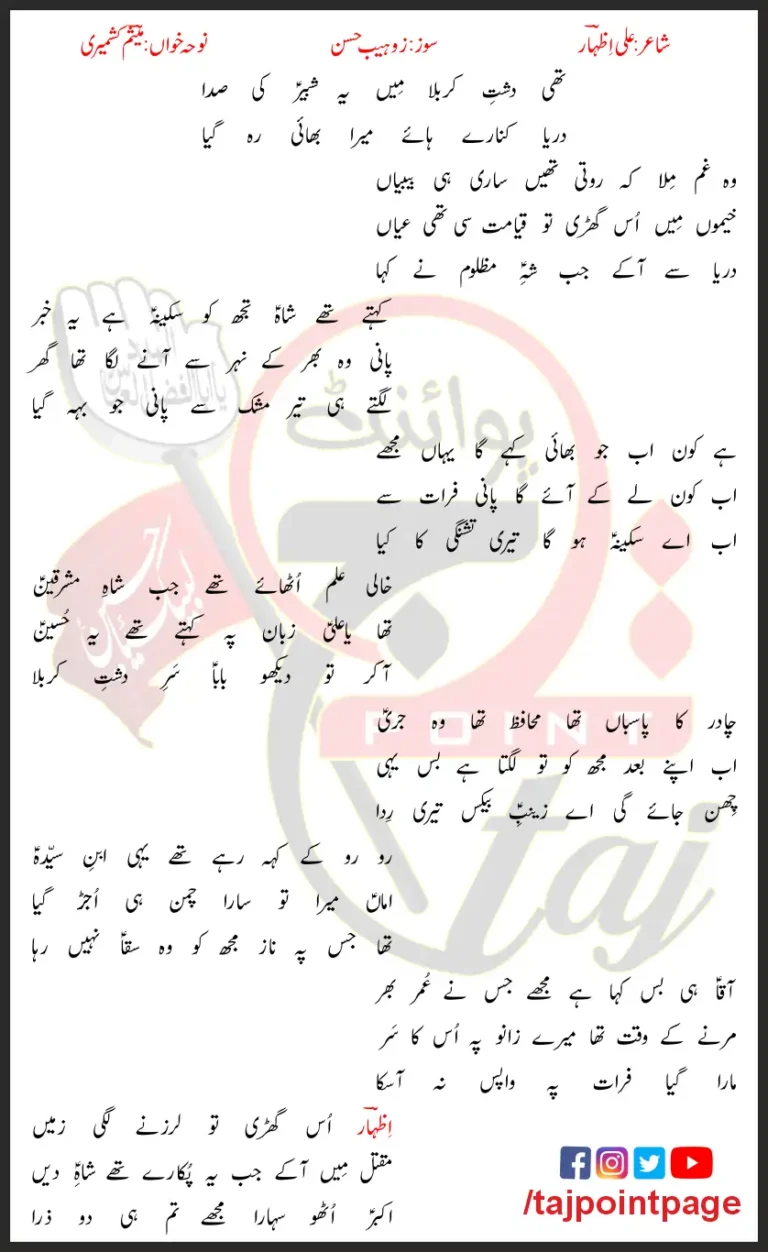 شاعر: علی اِظہار سوز: زوہیب حسن نوحہ خواں: میثم کشمیری
تھی دشتِ کربلا مِیں یہ شبیرؑ کی صدا
دریا کنارے ہائے میرا بھائی رہ گیا
وہ غم مِلا کہ روتی تھیں ساری ہی بیبیاں
خیموں مِیں اُس گھڑی تو قیامت سی تھی عیاں
دریا سے آکے جب شہِؑ مظلوم نے کہا
کہتے تھے شاہؑ تجھ کو سکینہؑ ہے یہ خبر
پانی وہ بھر کے نہر سے آنے لگا تھا گھر
لگتے ہی تیر مشک سے پانی جو بہہ گیا
ہے کون اب جو بھائی کہے گا یہاں مجھے
اب کون لے کے آئے گا پانی فرات سے
اب اے سکینہؑ ہو گا تیری تشنگی کا کیا
خالی علم اُٹھائے تھے جب شاہِ مشرقینؑ
تھا یاعلیؑ زبان پہ کہتے تھے یہ حُسینؑ
آ کر تو دیکھو باباؑ سَرِ دشتِ کربلا
چادر کا پاسباں تھا محافظ تھا وہ جریؑ
اب اپنے بعد مجھ کو تو لگتا ہے بس یہی
چِھن جائے گی اے زینبِؑ بیکس تیری رِدا
رو رو کے کہہ رہے تھے یہی ابنِ سیّدہؑ
اماںؑ میرا تو سارا چمن ہی اُجڑ گیا
تھا جس پہ ناز مجھ کو وہ سقاؑ نہیں رہا
آقاؑ ہی بس کہا ہے مجھے جس نے عُمر بھر
مرنے کے وقت تھا میرے زانو پہ اُس کا سَر
مارا گیا فرات پہ واپس نہ آسکا
اِظہار اُس گھڑی تو لرزنے لگی زمیں
مقتل مِیں آکے جب یہ پُکارے تھے شاہِؑ دیں
اکبرؑ اُٹھو سہارا مجھے تم ہی دو ذرا
پوائنٹ
تاج
POINT
taj
لبیک یا حسین
یا ابا الفضل العباس
/tajpointpage